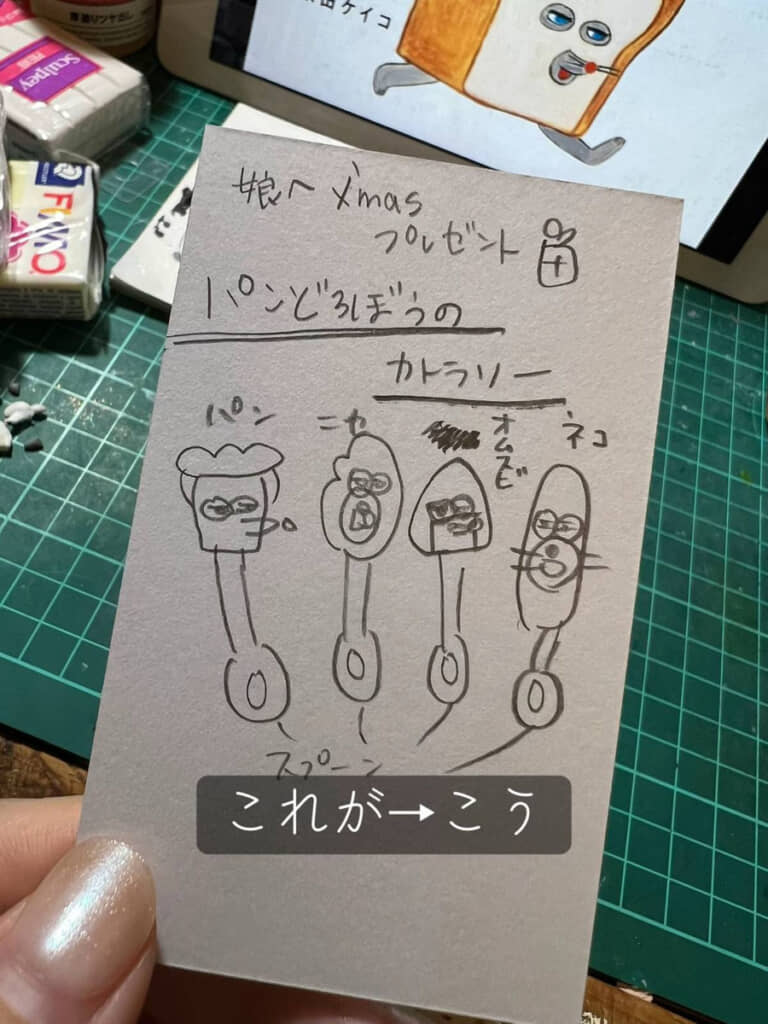 田ケイコ
Sculpey
FIMO
娘へ X'mas
プレゼント
パンどろぼうの
カトラリー
パン
ニセ
オムスビ
ネコ
スプーン
これが→こう